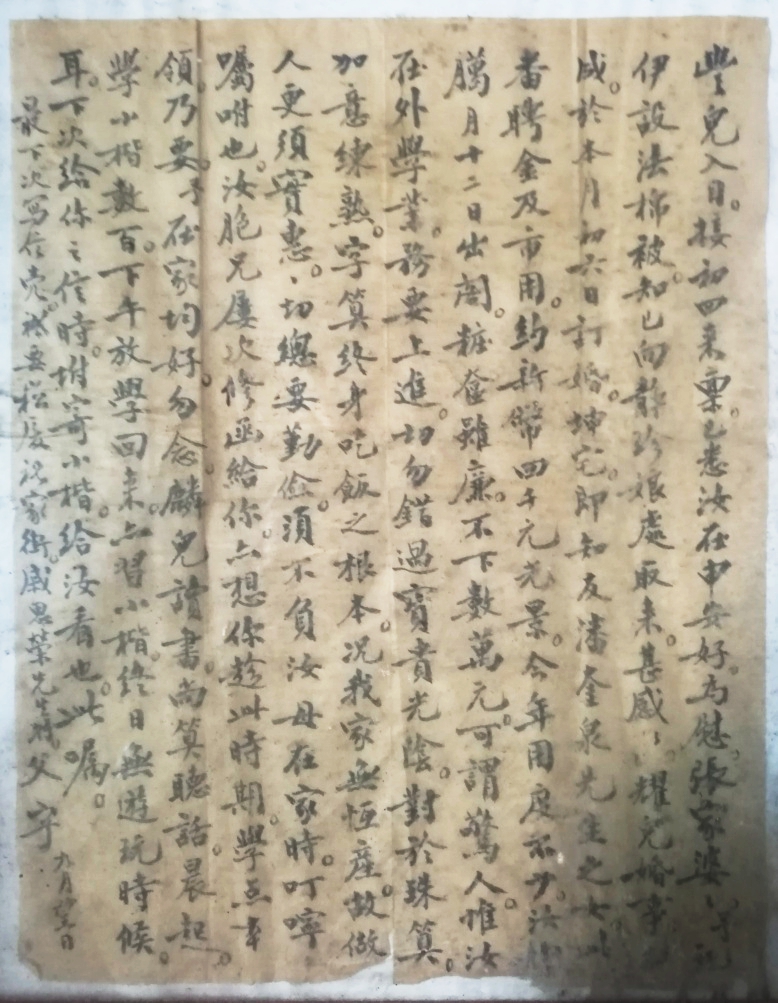 豐兒入目。接初四來稟。已悉汝在申安好。為慰。張家婆〻
伊設法棉被。知已向靜珍娘處取來。甚感〻。耀兒婚事
成。於本月初六日訂婚。坤宅即知友潘奎泉先生之女
番聘金及市用。約新幣四千元光景。今年用度不少。汝
臘月十二日出閣。粧奩雖廉。不下數萬元。可謂驚人。惟汝
在外學業。務要上進。切勿錯過寶貴光陰。對於珠算。
加意練熟。字算終身吃飯之根本。況我家無恒產。故做
人更須實惠、切總要勤儉。須不負汝母在家時。叮嚀
囑咐也。汝胞兄屢次修函給你。亦想你趁此時期。學点本
領。乃要。予在家均好。勿念。麟兒讀書。尚算聽話。晨起。
學小楷數百。下午放學回來。亦習小楷。終日無遊玩時候。
耳。下次給你之信時。附寄小楷。給汝看也。此囑。
最下次寫信壳。祇要松廈 家街。戚思榮先生 父字 九月 日